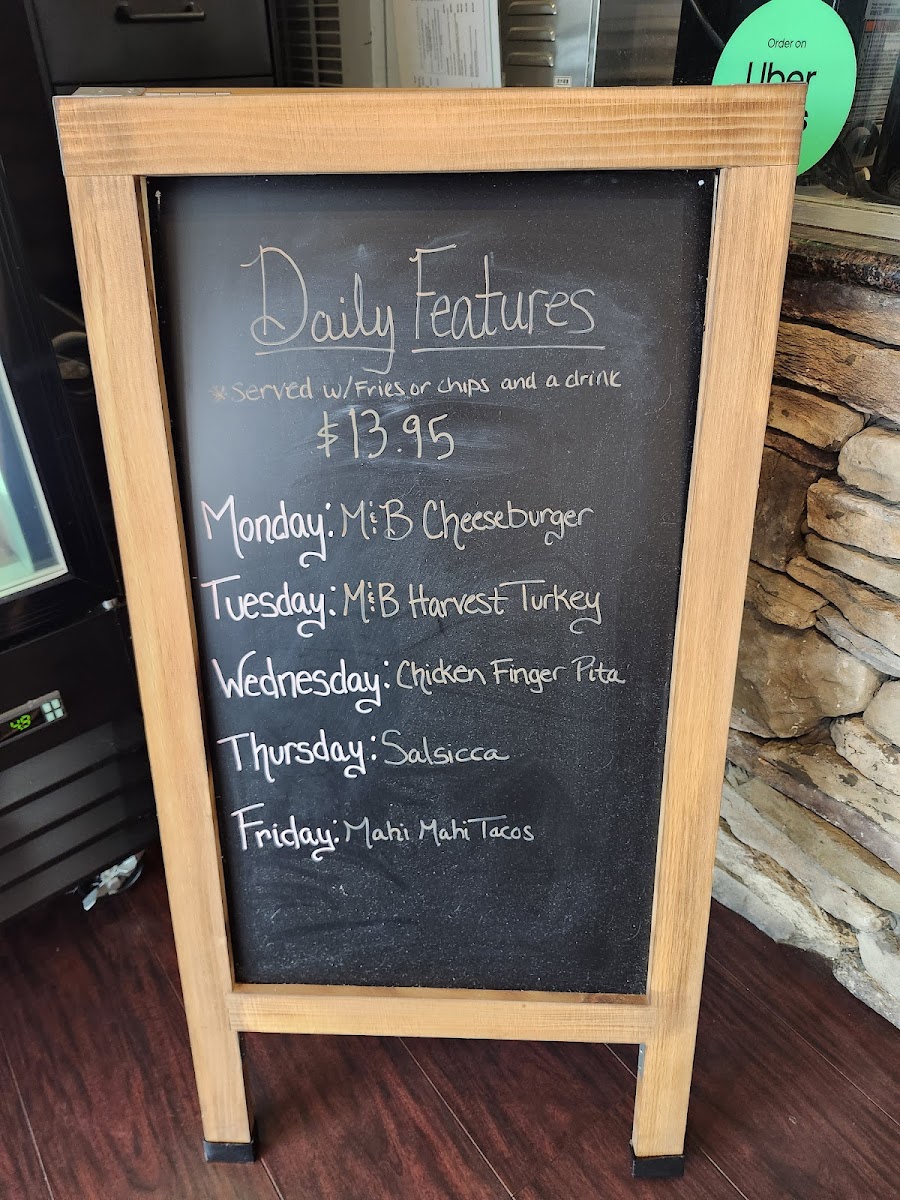 Order on
Uber
Daily Features
*Served w/Fries or chips and a drink
$13.95
Monday: M&B Cheeseburger
Tuesday: M&B Harvest Turkey
Wednesday: Chicken Finger Pita
Thursday: Salsicca
Friday: Mahi Mahi Tacos